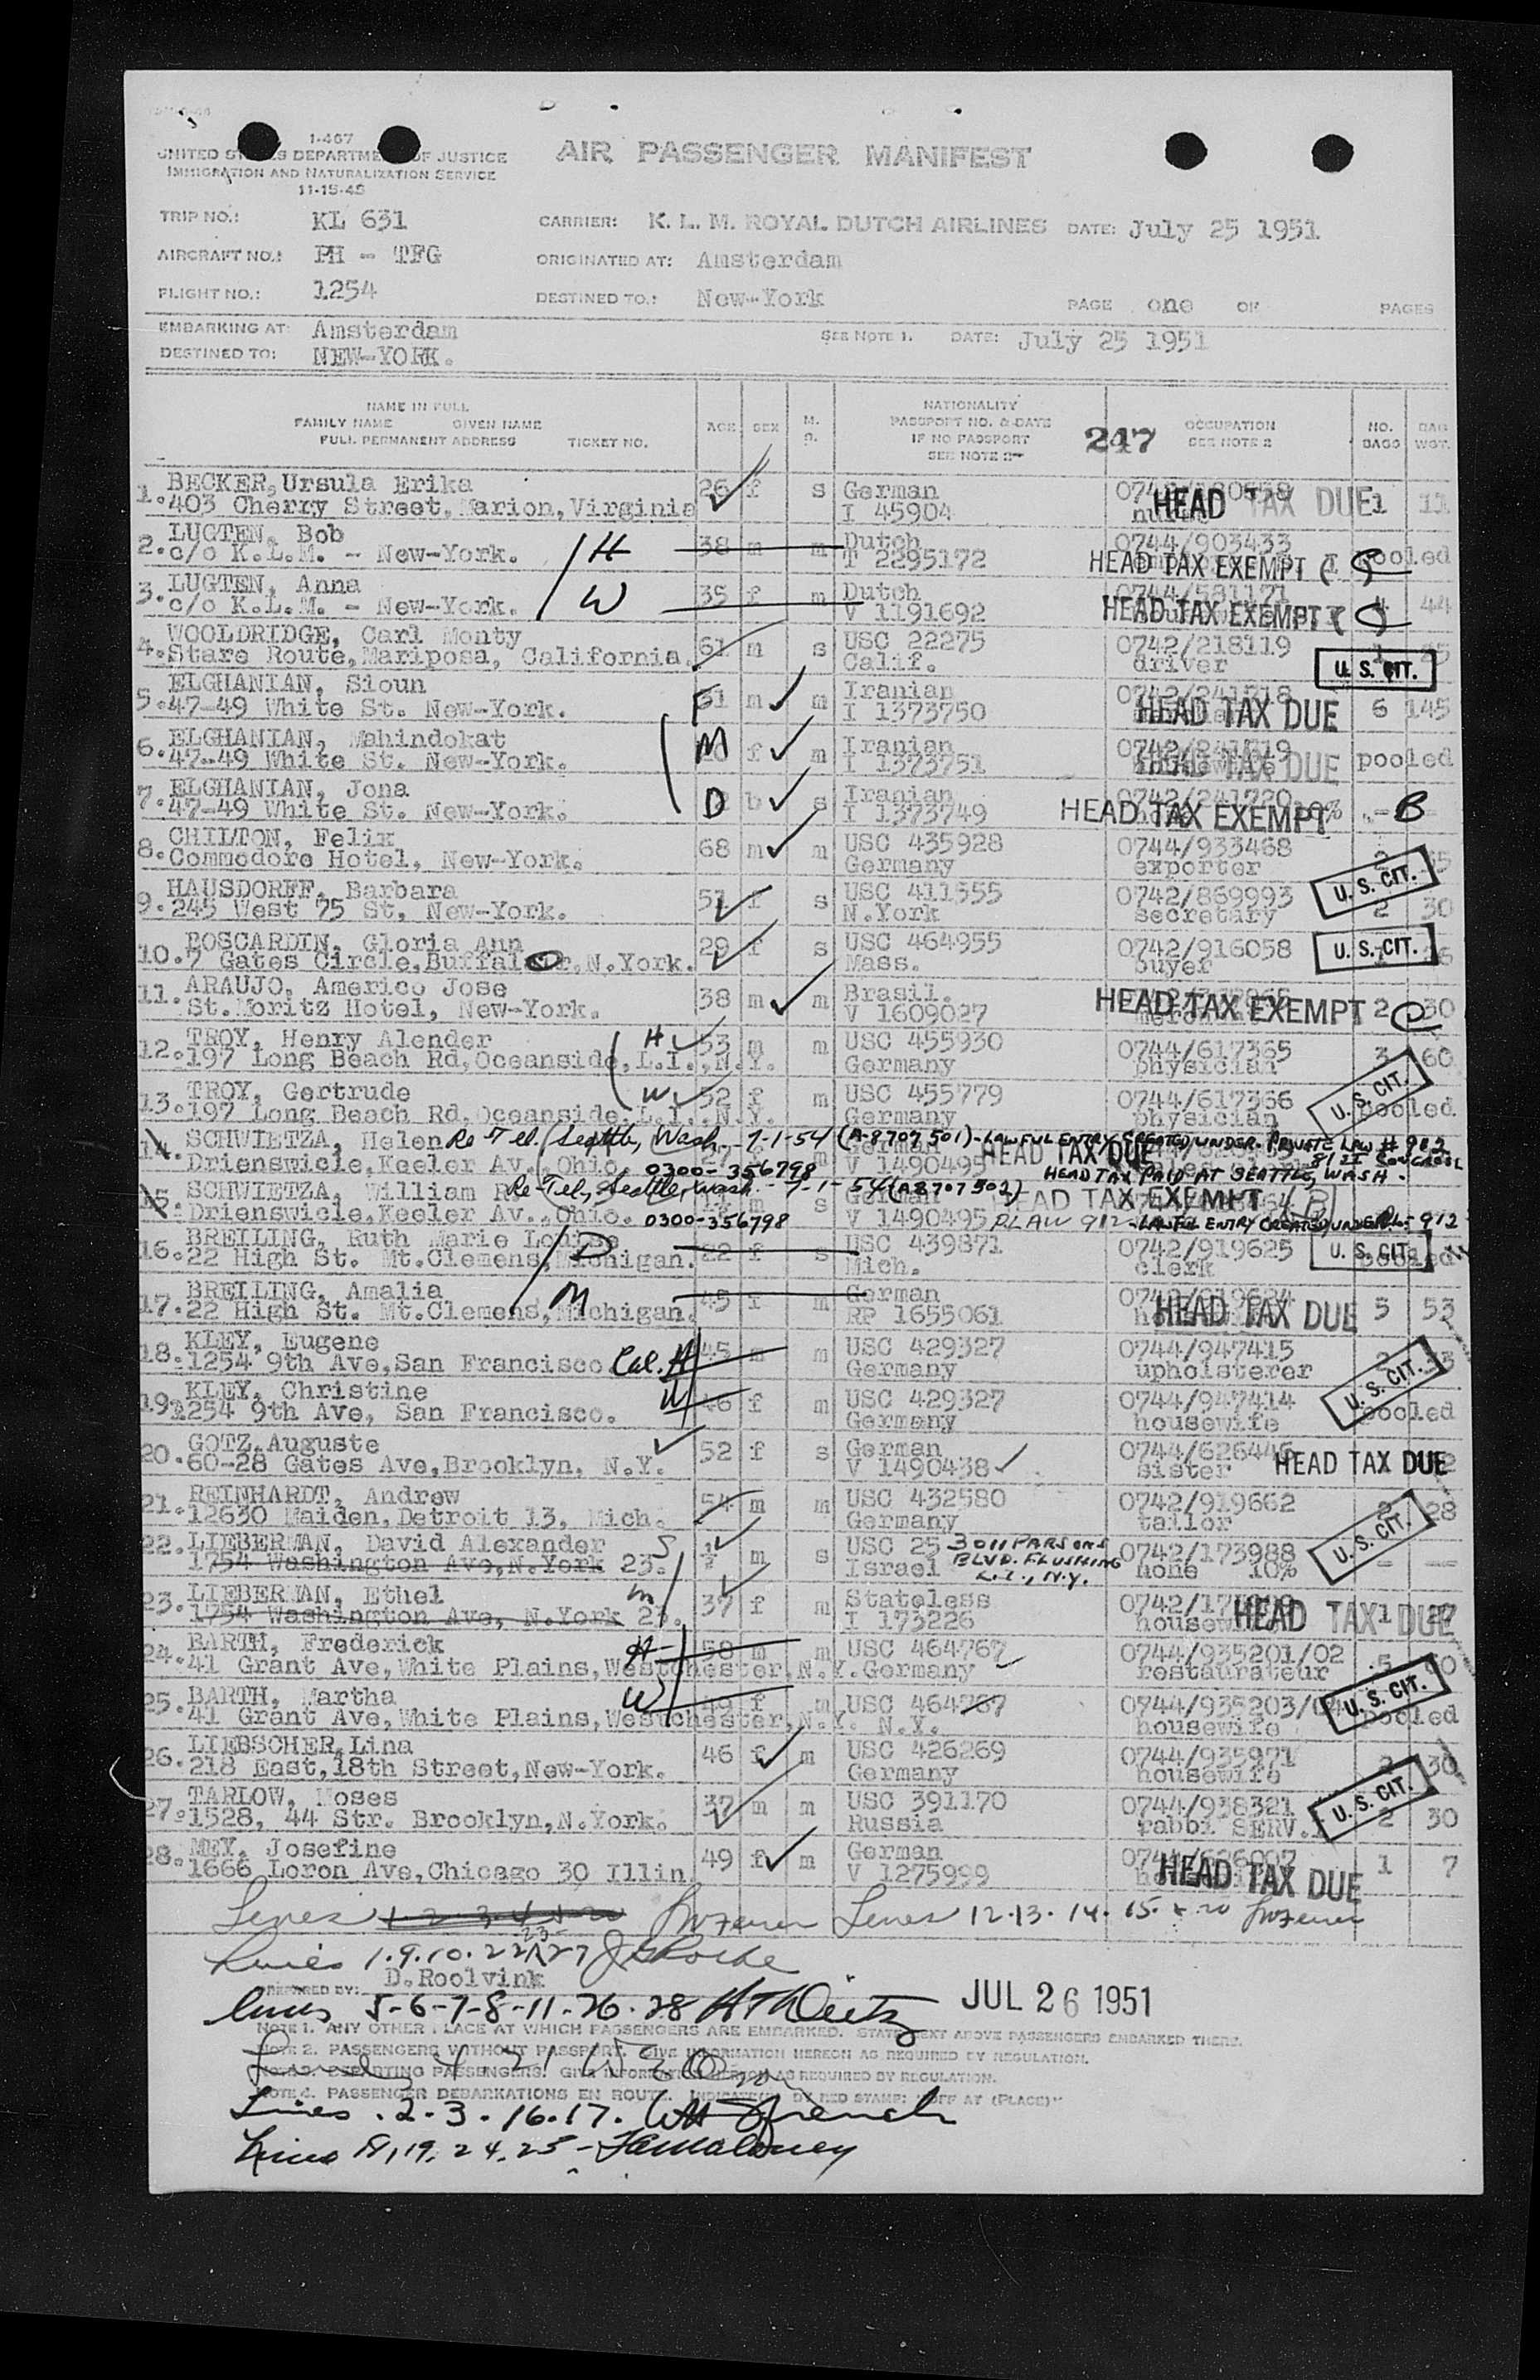 1-467
UNITED STATES DEPARTMENT OF JUSTICE
IMMIGRATION AND NATURALIZATION SERVICE
11-15-48
AIR PASSENGER MANIFEST
TRIP NO.: KL 631 CARRIER: K. L. M. ROYAL DUTCH AIRLINES DATE: July 25 1951
AIRCRAFT NO.: PH - TFG ORIGINATED AT: Amsterdam
FLIGHT NO.: 1254 DESTINED TO.: New-York PAGE one OF PAGES
EMBARKING AT: Amsterdam SEE NOTE 1. DATE: July 25 1951
DESTINED TO: NEW-YORK.
NAME IN FULL
FAMILY NAME GIVEN NAME
FULL PERMANENT ADDRESS TICKET NO.
AGE SEX M. S.
NATIONALITY
PASSPORT NO. & DATE
IF NO PASSPORT
SEE NOTE 2
247 OCCUPATION
SEE NOTE 2
NO. BAGS BAG WGT.
1. BECKER, Ursula Erika 26 f s German HEAD TAX DUE 1 11
403 Cherry Street, Marion, Virginia I 45904
2. LUGTEN, Bob 38 m m Dutch 0744/903433 pooled
c/o K.L.M. - New-York. H T 2295172 HEAD TAX EXEMPT
3. LUGTEN, Anna 35 f m Dutch 0744/581171 4 44
c/o K.L.M. - New-York. W V 1191692 HEAD TAX EXEMPT
4. WOOLDRIDGE, Carl Monty 61 m s USC 22275 0742/218119 1 25
Stare Route, Mariposa, California. Calif. driver U. S. CIT.
5. ELGHANIAN, Sioun F 31 m m Iranian 6 145
47-49 White St. New-York. I 1373750 HEAD TAX DUE
6. ELGHANIAN, Mahindokat M f m Iranian 0742/241519 pooled
47-49 White St. New-York. I 1373751 HEAD TAX DUE
7. ELGHANIAN, Jona D b s Iranian 10% - B
47-49 White St. New-York. I 1373749 HEAD TAX EXEMPT
8. CHILTON, Felix 68 m m USC 435928 0744/933468 2 35
Commodore Hotel, New-York. Germany exporter U. S. CIT.
9. HAUSDORFF, Barbara 51 f s USC 411555 0742/869993
245 West 75 St, New-York. N.York secretary 2 30
10. BOSCARDIN, Gloria Ann 29 f s USC 464955 0742/916058 U. S. CIT.
7 Gates Circle, Buffalo, N.York. Mass. buyer
11. ARAUJO, Americo Jose 38 m m Brasil. 2 30
St.Moritz Hotel, New-York. V 1609027 HEAD TAX EXEMPT
12. TROY, Henry Alender H 53 m m USC 455930 0744/617365 3 60
197 Long Beach Rd, Oceanside, L.I., N.Y. Germany physician
13. TROY, Gertrude W 52 f m USC 455779 0744/617366 pooled
197 Long Beach Rd, Oceanside, L.I., N.Y. Germany physician U. S. CIT.
14. SCHWIETZA, Helen Re Tel. Seattle, Wash. 7-1-54 (A-8707501) - LAWFUL ENTRY CREATED UNDER PRIVATE LAW # 912 81st CONGRESS
Drienswicle, Keeler Av., Ohio. 0300-356798 m V 1490495 HEAD TAX DUE HEAD TAX PAID AT SEATTLE, WASH.
15. SCHWIETZA, William R Re Tel, Seattle, Wash. - 7-1-54 (A8707502) HEAD TAX EXEMPT
Drienswicle, Keeler Av., Ohio. 0300-356798 V 1490495 P. LAW 912 - LAWFUL ENTRY CREATED UNDER P.L. - 912
16. BREILING, Ruth Marie Louise D 22 f s USC 439871 0742/919625 U. S. CIT. pooled
22 High St. Mt.Clemens, Michigan. Mich. clerk
17. BREILING, Amalia M 45 f m German 3 53
22 High St. Mt.Clemens, Michigan. RP 1655061 HEAD TAX DUE
18. KLEY, Eugene H 45 m m USC 429327 0744/947415
1254 9th Ave, San Francisco Cal. Germany upholsterer
19. KLEY, Christine W 46 f m USC 429327 0744/947414 pooled
1254 9th Ave, San Francisco. Germany housewife U. S. CIT.
20. GOTZ, Auguste 52 f s German 0744/626446
60-28 Gates Ave, Brooklyn, N.Y. V 1490438 sister HEAD TAX DUE
21. REINHARDT, Andrew 54 m m USC 432580 0742/919662 2 28
12630 Maiden, Detroit 13, Mich. Germany tailor
22. LIEBERMAN, David Alexander S 1/2 m s USC 25 3011 PARSONS BLVD. FLUSHING L.I., N.Y. 0742/173988 U. S. CIT.
1754 Washington Ave, N.York 23. Israel none 10%
23. LIEBERMAN, Ethel M 37 f m Stateless 1 27
1754 Washington Ave, N.York 23. I 173226 housewife HEAD TAX DUE
24. BARTH, Frederick H 58 m m USC 464767 0744/935201/02 5
41 Grant Ave, White Plains, Westchester, N.Y. Germany restaurateur
25. BARTH, Martha W 49 f m USC 464767 0744/935203/04 pooled
41 Grant Ave, White Plains, Westchester, N.Y. N.Y. housewife U. S. CIT.
26. LIEBSCHER, Lina 46 f m USC 426269 0744/935971 2 30
218 East, 18th Street, New-York. Germany housewife
27. TARLOW, Moses 37 m m USC 391170 0744/938321 U. S. CIT.
1528, 44 Str. Brooklyn, N.York. Russia rabbi SERV. 2 30
28. MEY, Josefine 49 f m German 1 7
1666 Loron Ave, Chicago 30 Illin V 1275999 HEAD TAX DUE
Lines 1-2-3-4-5-20 Lines 12-13-14-15-&-20
Lines 1.9.10.22 23 27
PREPARED BY: D.Roolvink
Lines 5-6-7-8-11-26-28 JUL 26 1951
NOTE 1. ANY OTHER PLACE AT WHICH PASSENGERS ARE EMBARKED. STATE NEXT ABOVE PASSENGERS EMBARKED THERE.
NOTE 2. PASSENGERS WITHOUT PASSPORT. GIVE INFORMATION HEREON AS REQUIRED BY REGULATION.
4-21
NOTE 3. DEPARTING PASSENGERS. GIVE INFORMATION HEREON AS REQUIRED BY REGULATION.
NOTE 4. PASSENGER DEBARKATIONS EN ROUTE. INDICATED BY RED STAMP: "OFF AT (PLACE)"
Lines . 2 - 3 - 16-17. French
Lines 18, 19, 24, 25 - Maloney